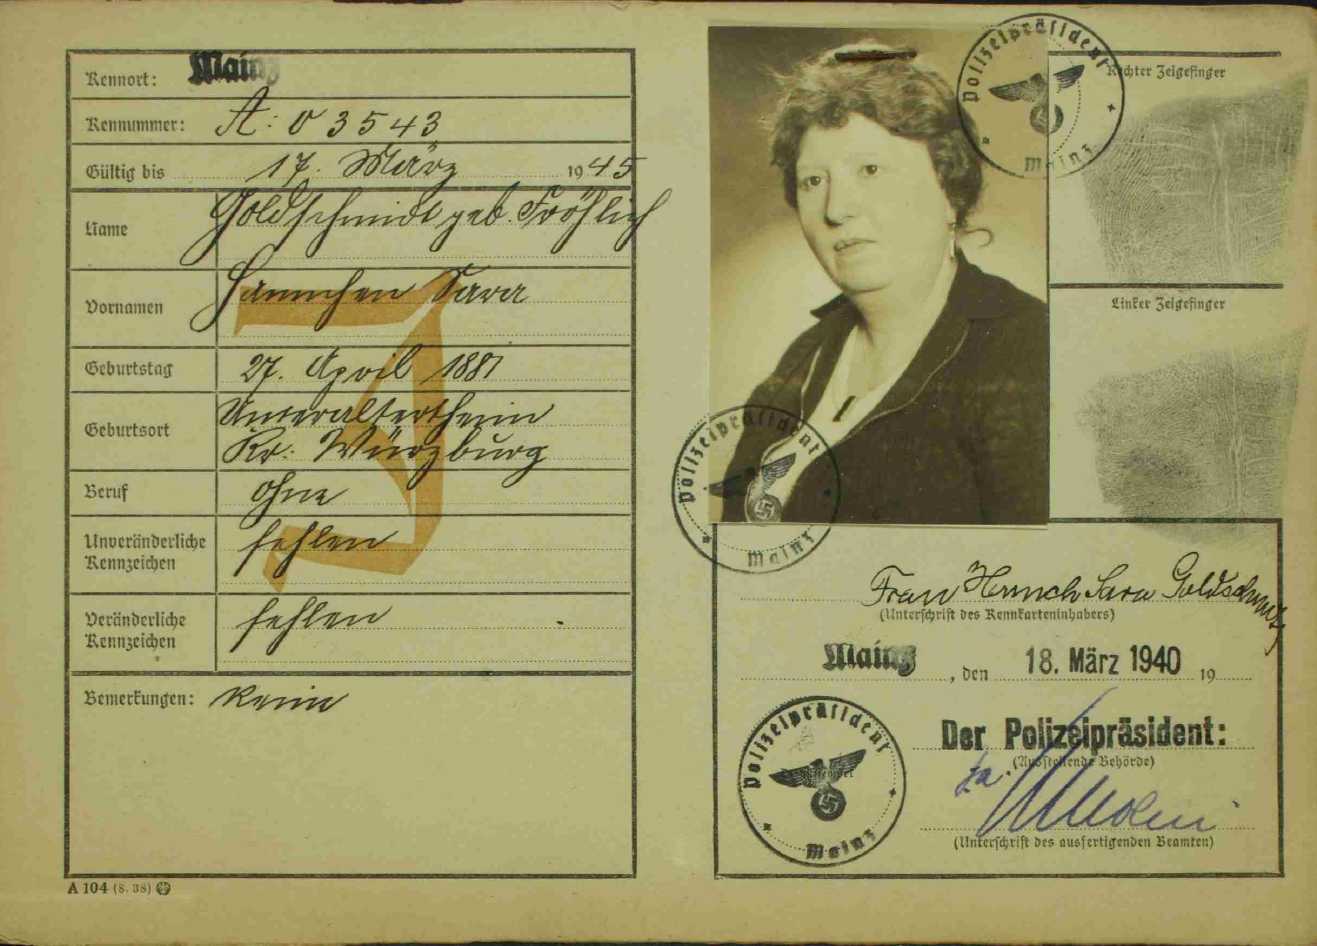 Kennort: Mainz
Kennummer: A: 0 3543
Gültig bis 17. März 1945
Name Goldschmidt geb. Fröhlich
Vornamen Hannchen Sara
J
Geburtstag 27. April 1881
Geburtsort Unteraltertheim
Kr. Würzburg
Beruf ohne
Unveränderliche fehlen
Kennzeichen
Veränderliche fehlen
Kennzeichen
Bemerkungen: Keine
A 104 (8. 38)
Polizeipräsident
Mainz
Rechter Zeigefinger
Linker Zeigefinger
Polizeipräsident
Mainz
Frau Sara Goldschmidt
(Unterschrift des Kennkarteninhabers)
Mainz, den 18. März 1940 19
Polizeipräsident
Mainz
Der Polizeipräsident:
(Ausstellende Behörde)
(Unterschrift des ausfertigenden Beamten)